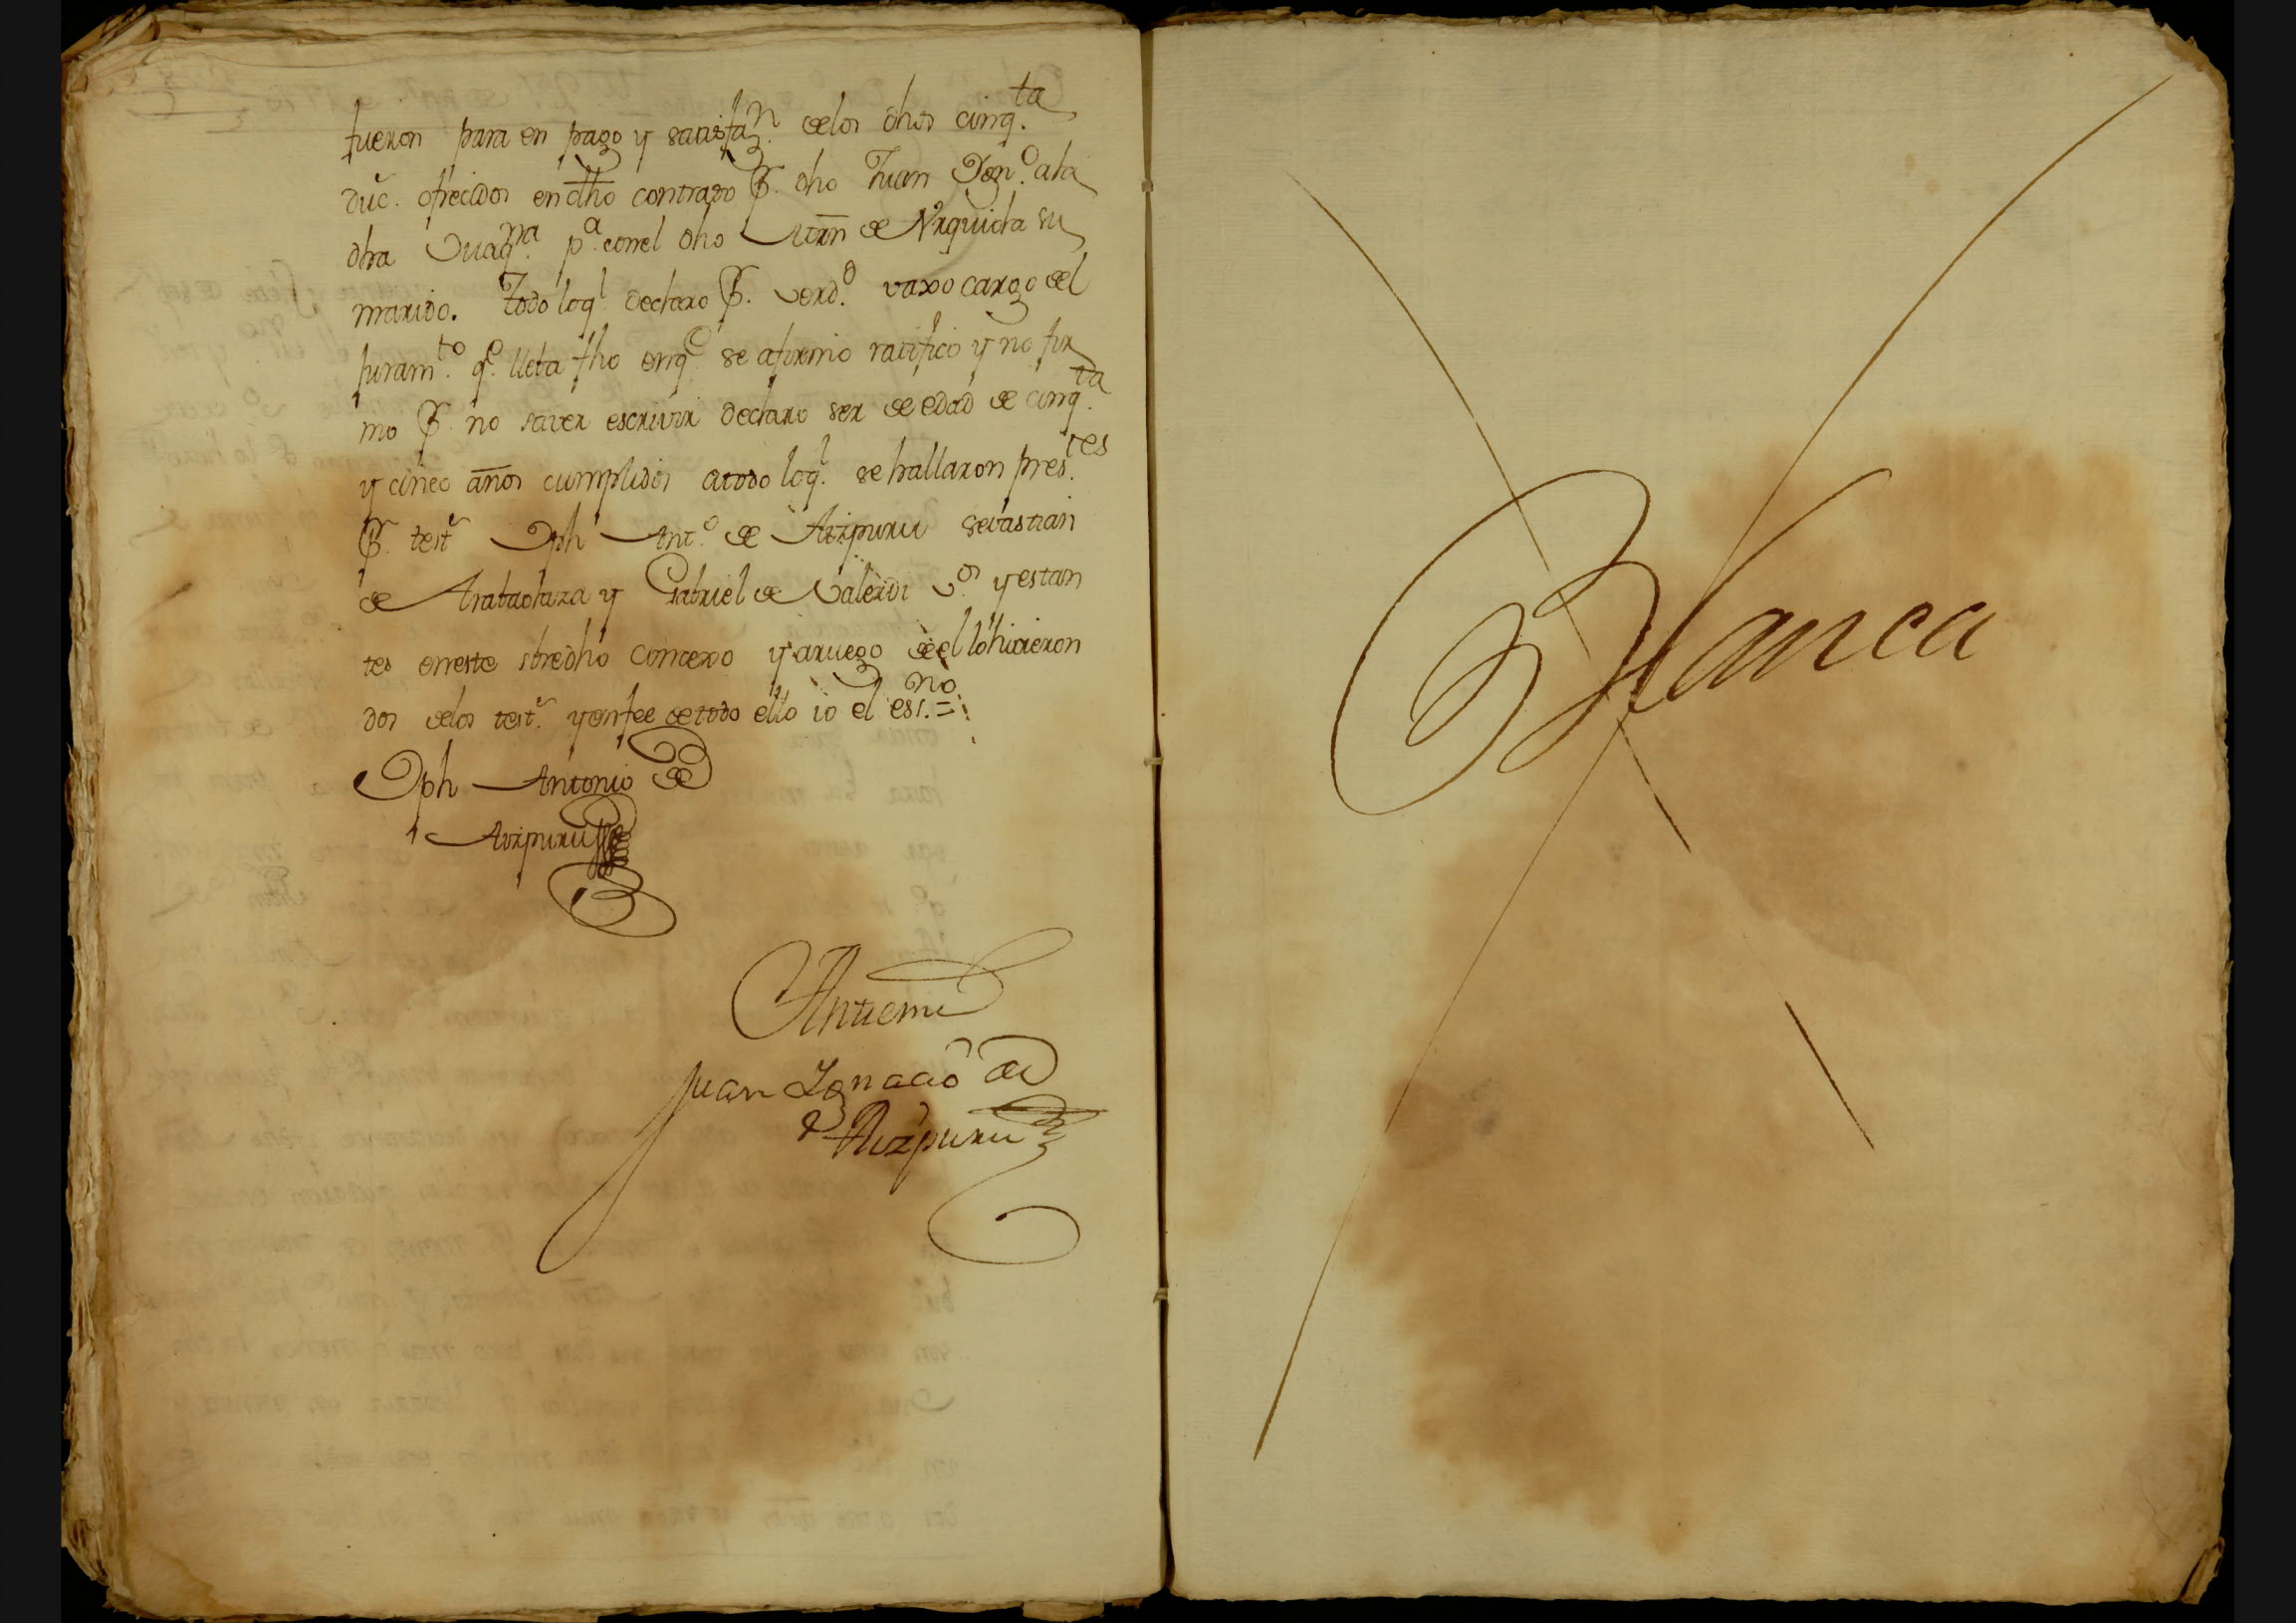 fueron para en pago y satisfaz.n delos dhos cinq.ta
duc. ofrecidos en dho contrato P. dho Juan Ign.o ala
dha Juaq.na p.a conel dho Mrn de Vrquidia su
marido. Todo loq.l declaro P. verd.d vaxo cargo del
juram.to q.e lleba fho enq.e se afirmo ratifico y no fir
mo P. no saver escrivir declaro ser de edad de cinq.ta
y cinco años cumplidos atodo loq.l se hallaron pres.tes
P. test.s Jph Ant.o de Aizpuru Sevastian
de Arabaolaza y Gabriel de Valerdi v.os y estan
tes eneste sbredho Concexo y aruego de el lo hicieron
dos delos test.s y enfee de todo ello io el ess.no =
Jph Antonio de
Aizpuru
Antemi
Juan Ignacio de
Aizpuru
Blanca